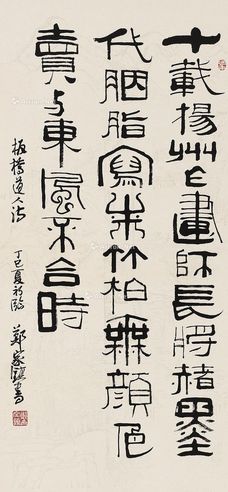 十載揚州作畫師長將赭墨
代胭脂寫來竹柏無顏色
賣与東風不合時
板橋道人詩 丁巳夏初臨 鄭家鎮書